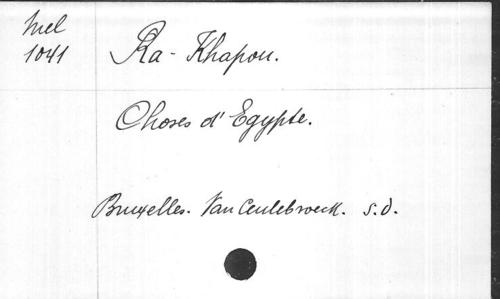 Mel
1041
Ra-Khapou.
Choses d'Egypte.
Bruxelles. Van Ceulebroeck. s.d.